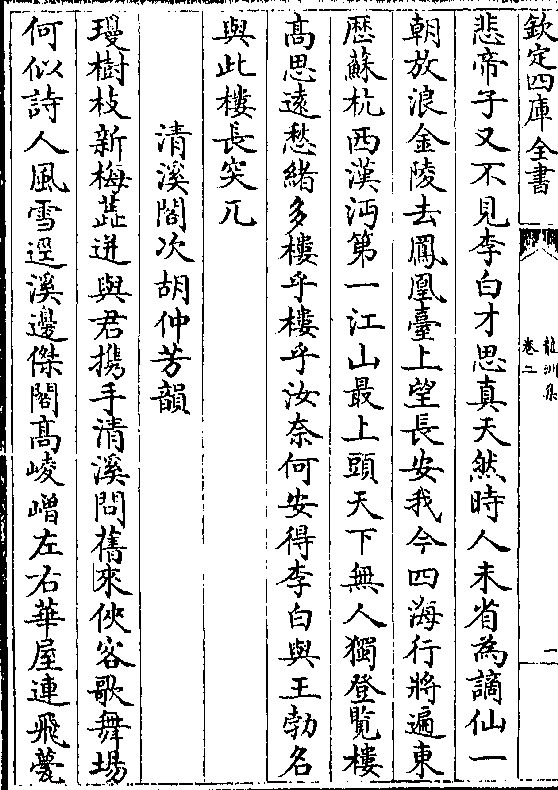 欽定四庫全書
龍洲集
卷二
一
悲帝子又不見李白才思真天然時人未省為謫仙一
朝放浪金陵去鳳凰臺上望長安我今四海行將遍東
歴蘇杭西漢沔第一江山最上頭天下無人獨登覧樓
髙思逺愁緒多樓乎樓乎汝奈何安得李白與王勃名
與此樓長突兀
清溪閣次胡仲芳韻
瓊樹枝新梅蕋迸與君携手清溪問舊來俠客歌舞場
何似詩人風雪逕溪邊傑閣髙崚嶒左右華屋連飛甍